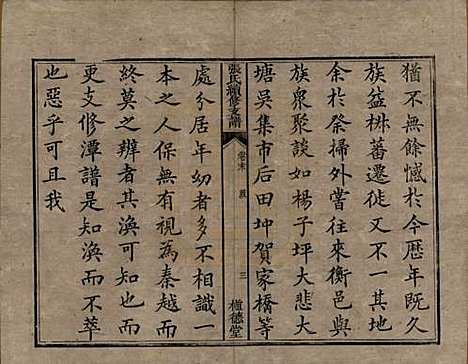 猶不無餘憾於今歴年既久
族益椕蕃遷徙又不一其地
余於祭掃外嘗往來衡邑與
族衆聚談如楊子坪大悲大
塘吴集市后田坤賀家橋等
張氏續修支譜
卷末
三
種德堂
處分居年幼者多不相識一
本之人保無有視為秦越而
終莫之辨者其渙可知也今
更支修潭譜是知渙而不萃
也惡乎可且我